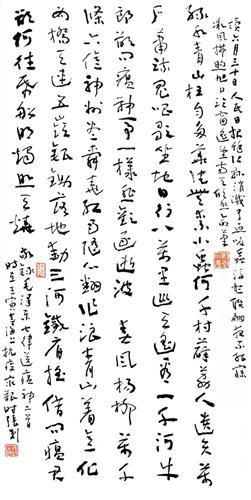 读六月三十日人民日报余江县消灭了血吸虫浮想联翩夜不能寐
微风拂煦旭日临窗遥望南天欣然命笔
绿水青山枉自多华佗无奈小虫何千村薜荔人遗矢万
户萧疏鬼唱歌坐地日行八万里巡天遥看一千河牛
郎欲问瘟神事一样悲欢逐逝波春风杨柳万千
条六亿神州尽舜尧红雨随心翻作浪青山着意化
为桥天连五岭银锄落地动三河铁臂摇借问瘟君
欲何往纸船明烛照天烧
敬录毛泽东七律送瘟神二首
时在壬寅抗疫时